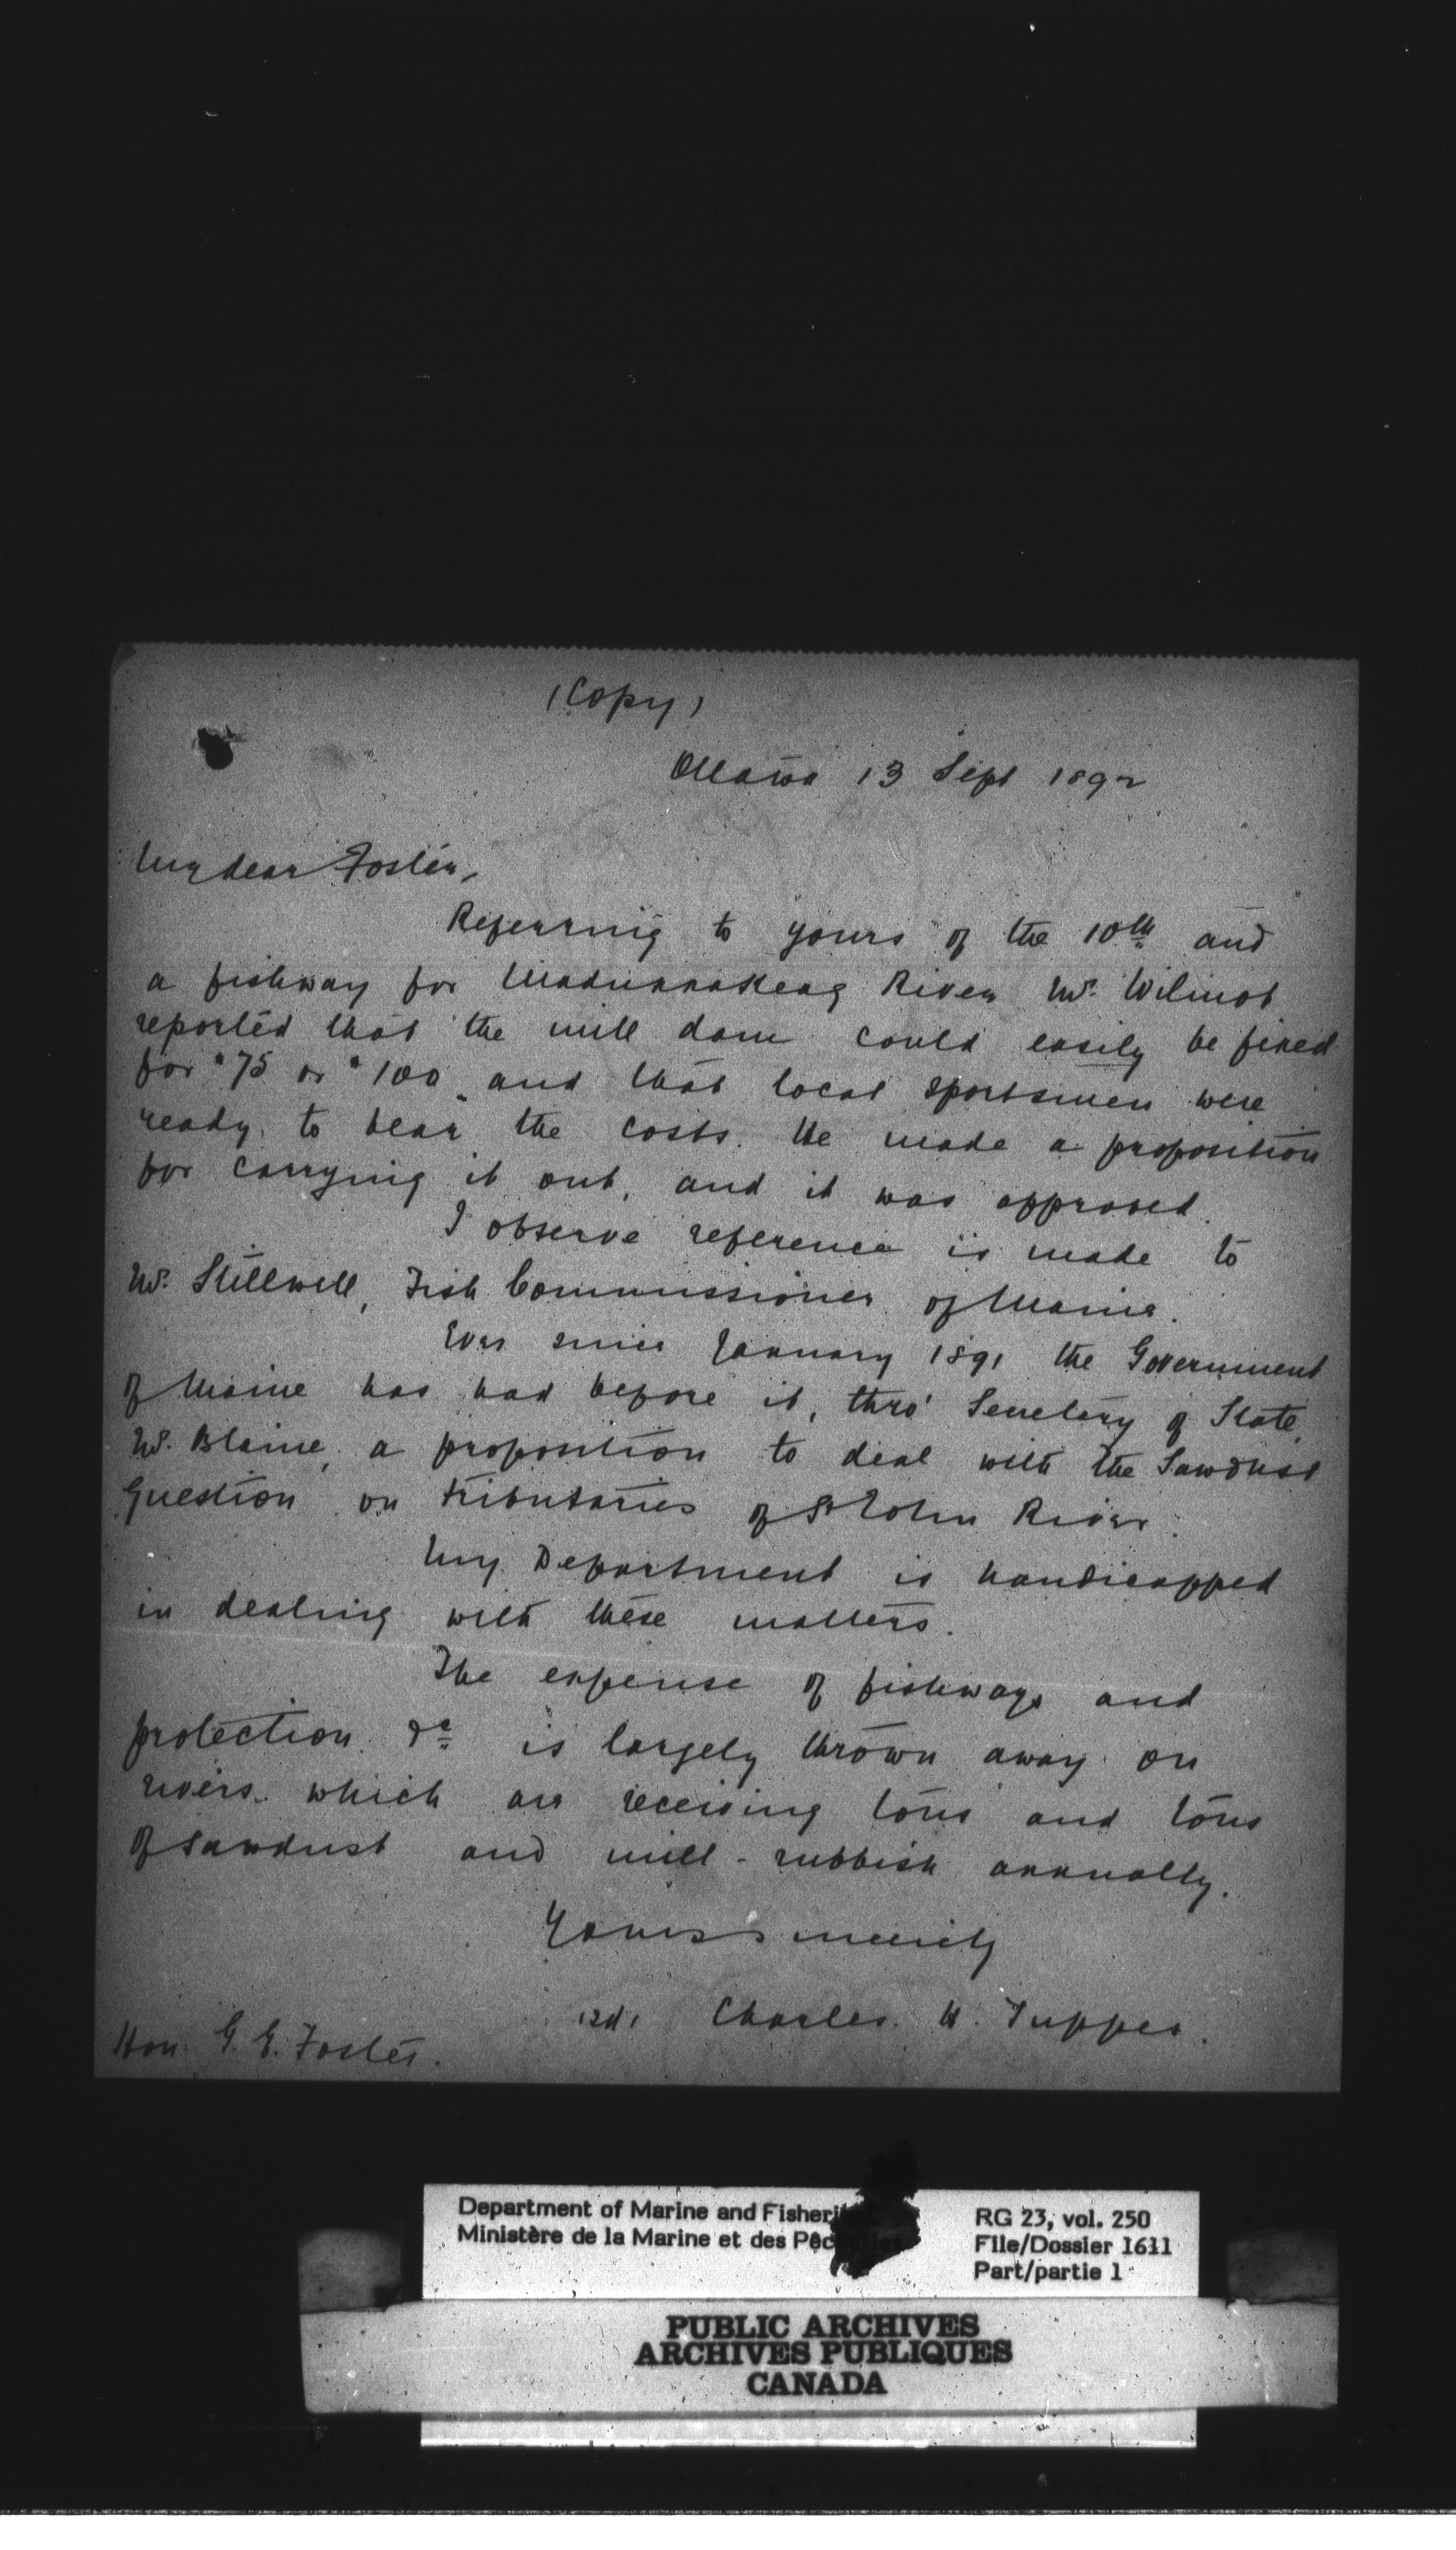 (Copy)
Ottawa 13 Sept 1892
My dear Foster,
Referring to yours of the 10th and
a fishway for Maduxnakeag River Mr. Wilmot
reported that the mill dam could easily be fixed
for $75 or $100 and that local sportsmen were
ready to bear the costs. He made a proposition
for carrying it out, and it was approved.
I observe reference is made to
Mr. Stillwell, Fish Commissioner of Maine.
Ever since January 1891 the Government
of Maine has had before it, thro' Secretary of State,
Mr. Blaine, a proposition to deal with the Sawdust
Question on tributaries of St John River.
My Department is handicapped
in dealing with these matters.
The expense of fishways and
protection &c is largely thrown away on
rivers which are receiving tons and tons
of sawdust and mill-rubbish annually.
Yours sincerely
(sd) Charles H. Tupper.
Hon. G. E. Foster.
Department of Marine and Fisheri
Ministère de la Marine et des Pêcheries
RG 23, vol. 250
File/Dossier 1611
Part/partie 1
PUBLIC ARCHIVES
ARCHIVES PUBLIQUES
CANADA